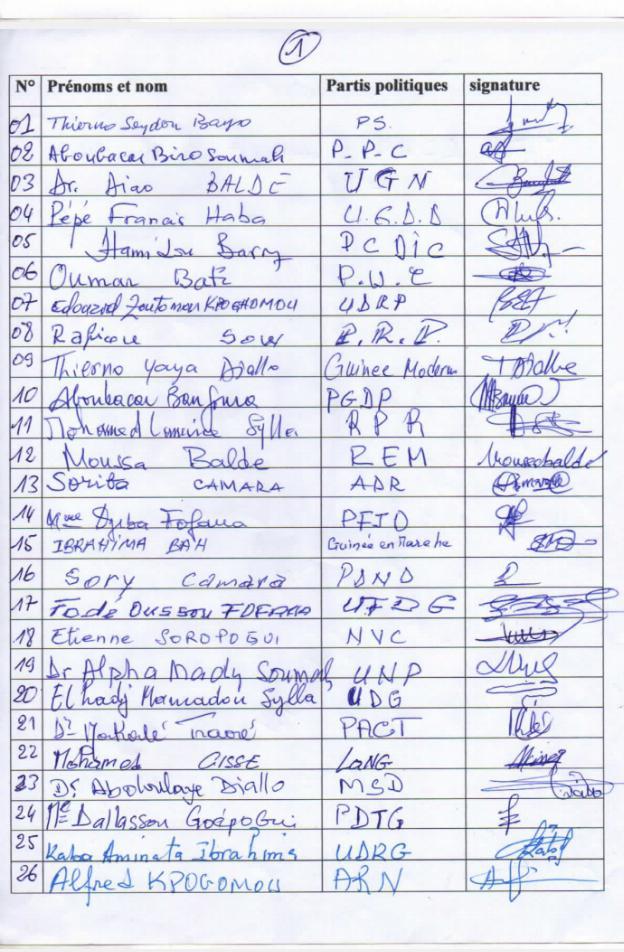 1
N° Prénoms et nom Partis politiques signature
01 Thierno Seydou Bayo PS.
02 Aboubacar Biro Soumah P-P-C
03 Dr. BALDE UGN
04 Pépé Francis Haba U.G.D.D
05 Hamidou Barry PCDIC
06 Oumar P.U.
07 Edouard Zoutomou KPOGHOMOU UDRP
08 Rafiou SOW P.R.P.
09 Thierno Yaya Diallo Guinee Moderne TDiallo
10 Aboubacar Bangoura PGDP
11 Mohamed Lamine Sylla RPR
12 Moussa Balde REM Moussabaldé
13 Soriba CAMARA ADR
14 Mme Djiba Fofana
15 IBRAHIMA BAH Guinée en Marche
16 Sory Camara PDND
17 Fodé OUSSOU FOFANA UFDG
18 Etienne SOROPOGUI NVC
19 Dr Alpha Mady Soumah UNP
20 Elhadj Mamadou Sylla UDG
21 Dr Makalé Traoré PACT
22 Mohamed CISSE LaNG
23 Dr. Abdoulaye Diallo MSD
24 Me Dallasson Goépogui PDTG
25 Kaba Aminata Ibrahima UDRG
26 Alfred KPOGOMOU ARN